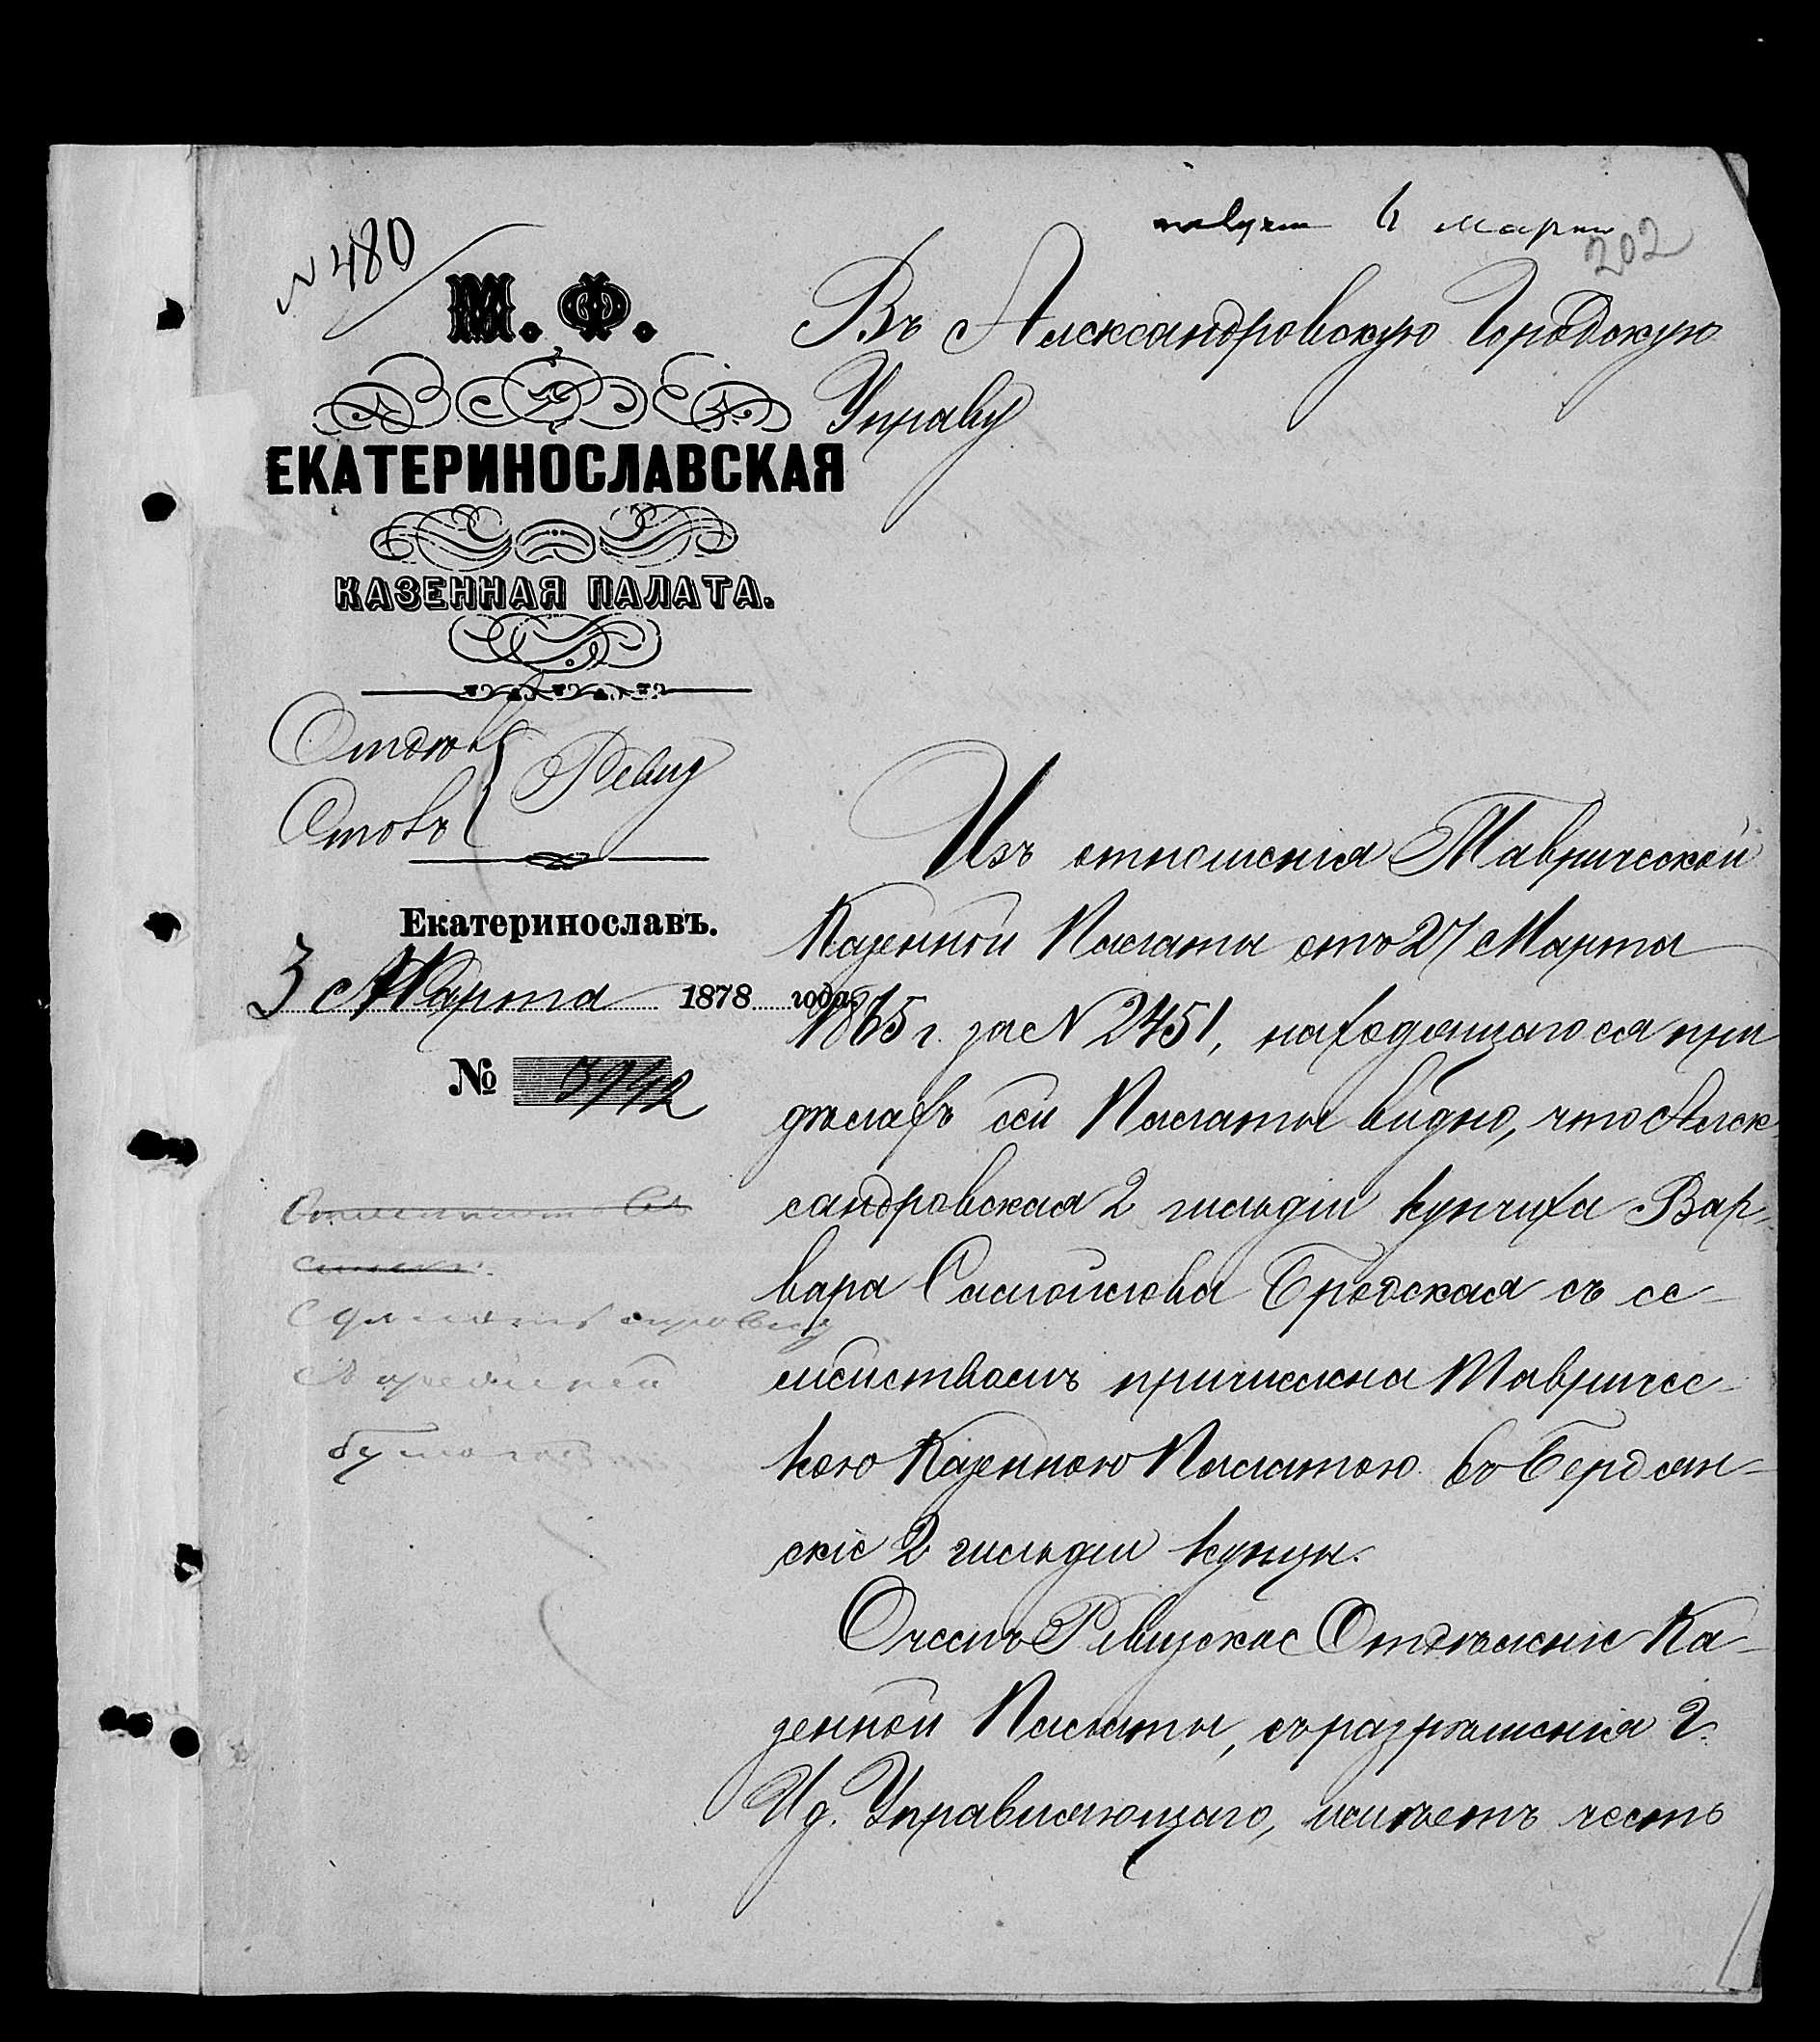 № 480
202
М. Ф.
ЕКАТЕРИНОСЛАВСКАЯ
КАЗЕННАЯ ПАЛАТА.
Отдѣл
Столъ
Ревиз
Екатеринославъ.
3 Марта 1878 года.
№ 3942
получен 6 марта
Въ Александровскую Городскую
Управу
Изъ отношенія Таврической
Казенной Палаты отъ 27 Марта
1865 г. за № 2451, находящагося при
дѣлахъ сей Палаты видно, что Алек-
сандровская 2 гильдіи купчиха Вар-
вара Самойлова Бродская съ се-
мействомъ причислена Тавричес-
кою Казенною Палатою въ Бердян-
скіе 2 гильдіи купцы.
О чемъ Ревизское Отдѣленіе Ка-
зенной Палаты, съ разрѣшенія Г.
И д. Управляющаго, имѣетъ честь